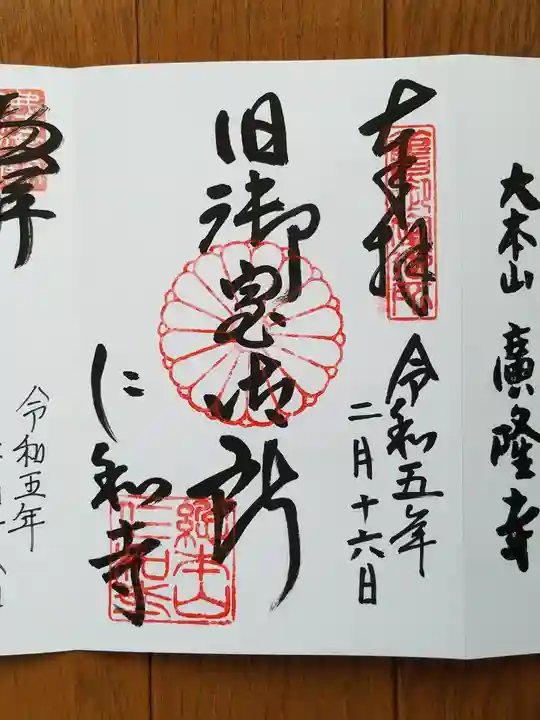 大本山
廣隆寺
奉拝
令和五年
二月十六日
旧御室御所
仁和寺
総本山
仁和寺
拝
令和五年